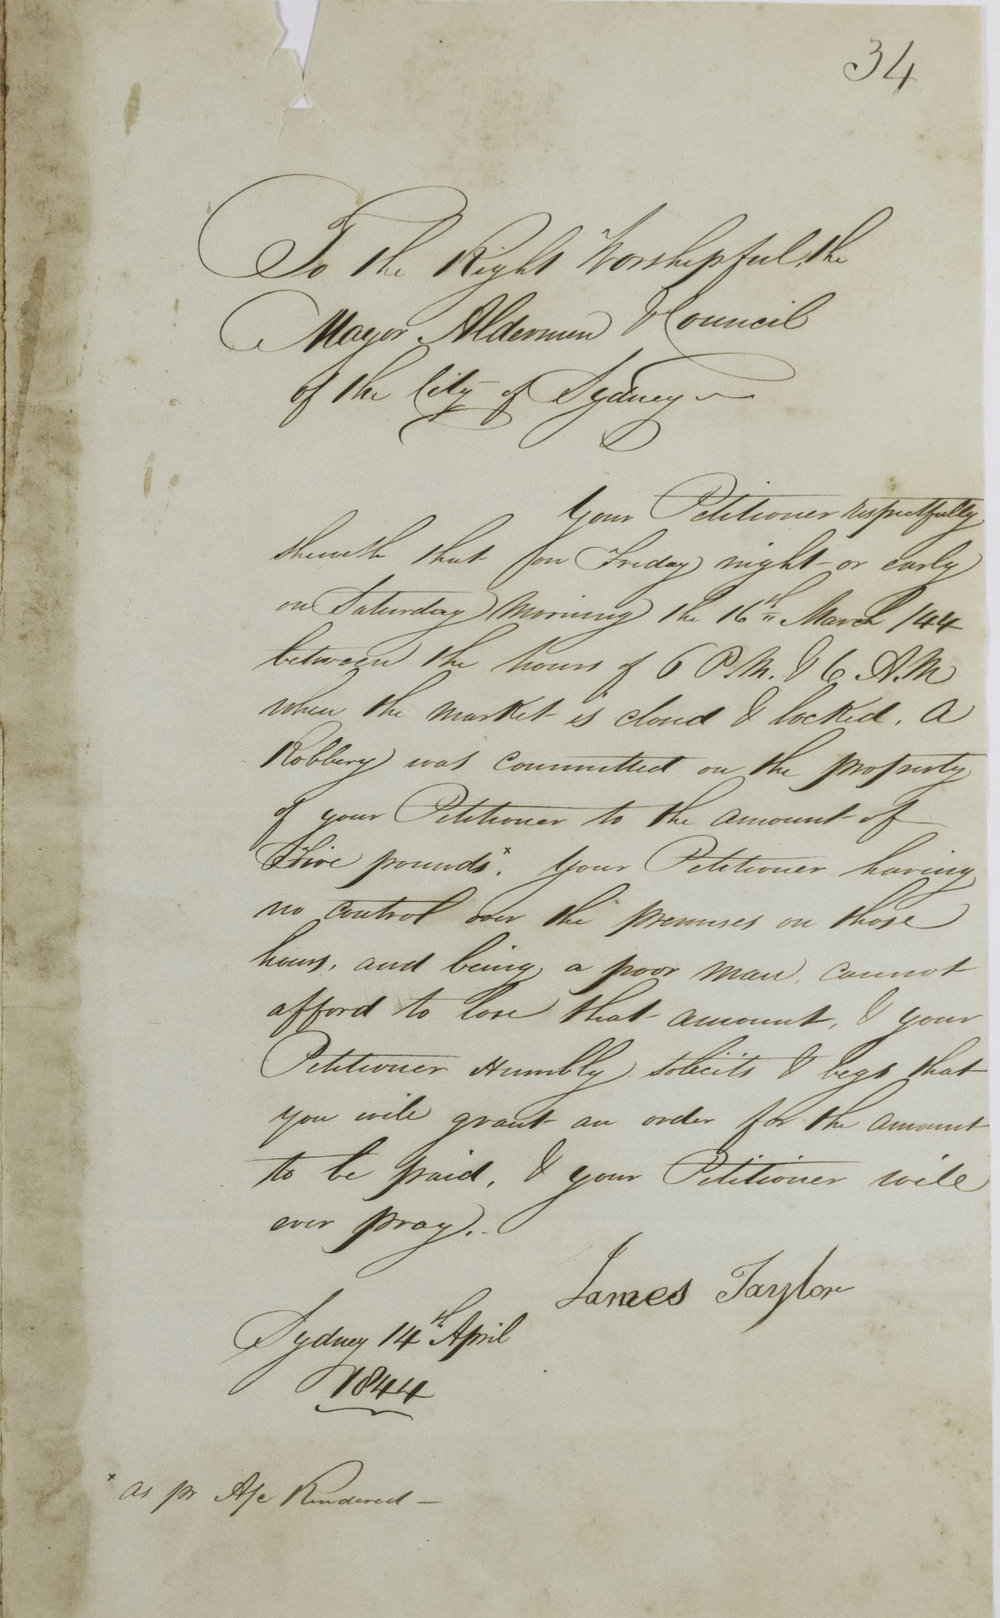 34
To the Right Worshipful, the
Mayor Aldermen & Council
of the City of Sydney
Your Petitioner respectfully
sheweth that on Friday night or early
on Saturday Morning the 16th March /44
between the hours of 6 P.M. & 6 A.M
when the market is closed & locked. A
Robbery was committed on the property
of your Petitioner to the amount of
Five pounds.x Your Petitioner having
no control over the premises on those
hours, and being a poor man, cannot
afford to lose that amount, & your
Petitioner Humbly solicits & begs that
you will grant an order for the amount
to be paid, & your Petitioner will
ever pray.
James Taylor
Sydney 14th April
1844
x as pr A/c Rendered